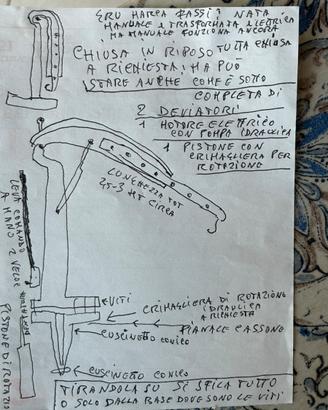 GRU MARCA FASSI NATA
MANUALE E TRASFORMATA ELETTRICA
MA MANUALE FUNZIONA ANCORA
CHIUSA IN RIPOSO TUTTA CHIUSA
A RICHIESTA: HA PUO'
STARE ANCHE COME È SOTTO
COMPLETA DI
2 DEVIATORI
1 MOTORE ELETTRICO
CON POMPA IDRAULICA
1 PISTONE CON
CRIMAGLIERA PER
ROTAZIONE
LUNGHEZZA TOT
2,5-3 MT CIRCA
LEVA COMANDO
A MANO 2 VELOC
PISTONE DI ROTAZIO
VITI
CRIMAGLIERA DI ROTAZIONE
IDRAULICA
A RICHIESTA
PIANALE CASSONE
CUSCINETTO CONICO
CUSCINETTO CONICO
TIRANDOLA SU SI SFILA TUTTO
O SOLO DALLA BASE DOVE SONO LE VITI